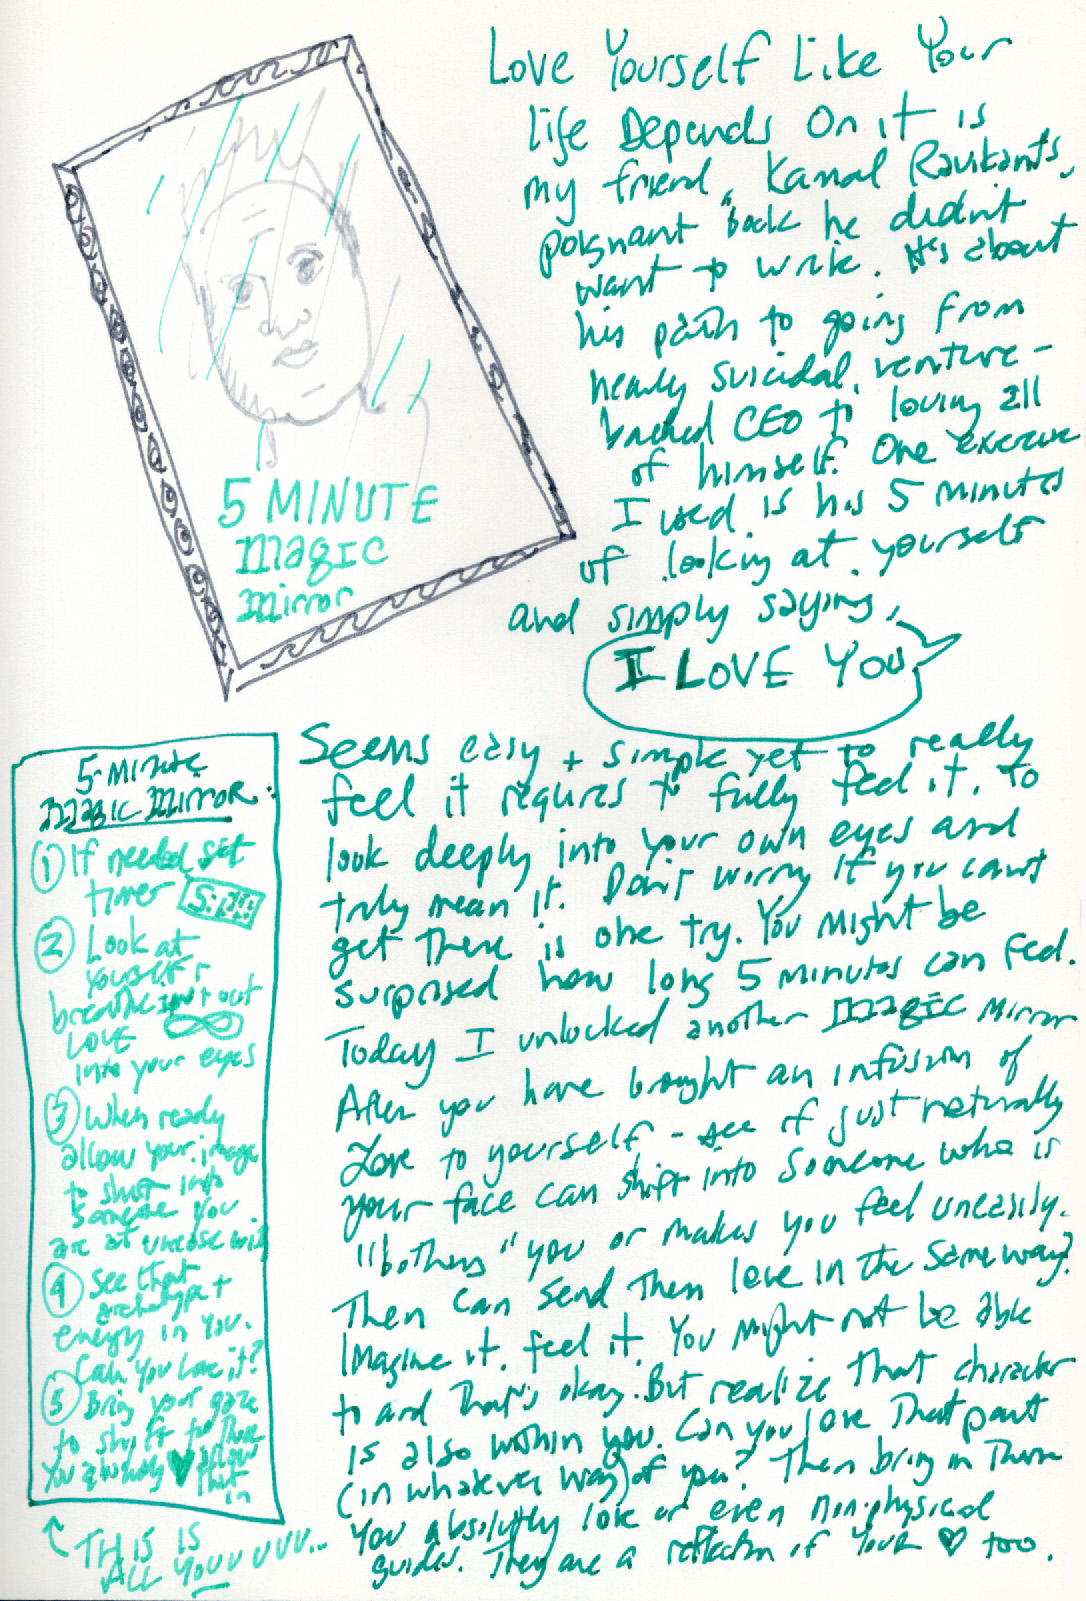 Love Yourself Like Your
life Depends On it is
my friend, Kamal Ravikant's,
poignant book he didn't
want to write. It's about
his path to going from
nearly suicidal, venture-
backed CEO to loving all
of himself. One exercise
I used is his 5 minutes
of looking at yourself
and simply saying,
I LOVE YOU
5 MINUTE
MAGIC
Mirror
Seems easy + simple yet to really
feel it requires to fully feel it, to
look deeply into your own eyes and
truly mean it. Don't worry if you can't
get there is one try. You might be
surprised how long 5 minutes can feel.
Today I unlocked another MAGIC Mirror
After you have brought an infusion of
Love to yourself - see if just naturally
your face can shift into someone who is
"bothers" you or makes you feel uneasily.
Then can send them love in the same way?
Imagine it. feel it. You might not be able
to and that's okay. But realize that character
is also within you. Can you love that part
(in whatever way) of you? Then bring in them
you absolutly love or even non-physical
guides. They are a reflection of YOUR ♥ too.
5 Minute
Magic Mirror:
① If needed, set
timer
② Look at
yourself +
breathe in + out
LOVE
into your eyes
③ When ready
allow your image
to shift into
someone you
are at unease with
④ See that
archetype +
energy in you.
Can you love it?
⑤ Bring your gaze
to shift to those
you absolutely ♥ allow
that in
THIS IS
ALL YOUUUUUU...